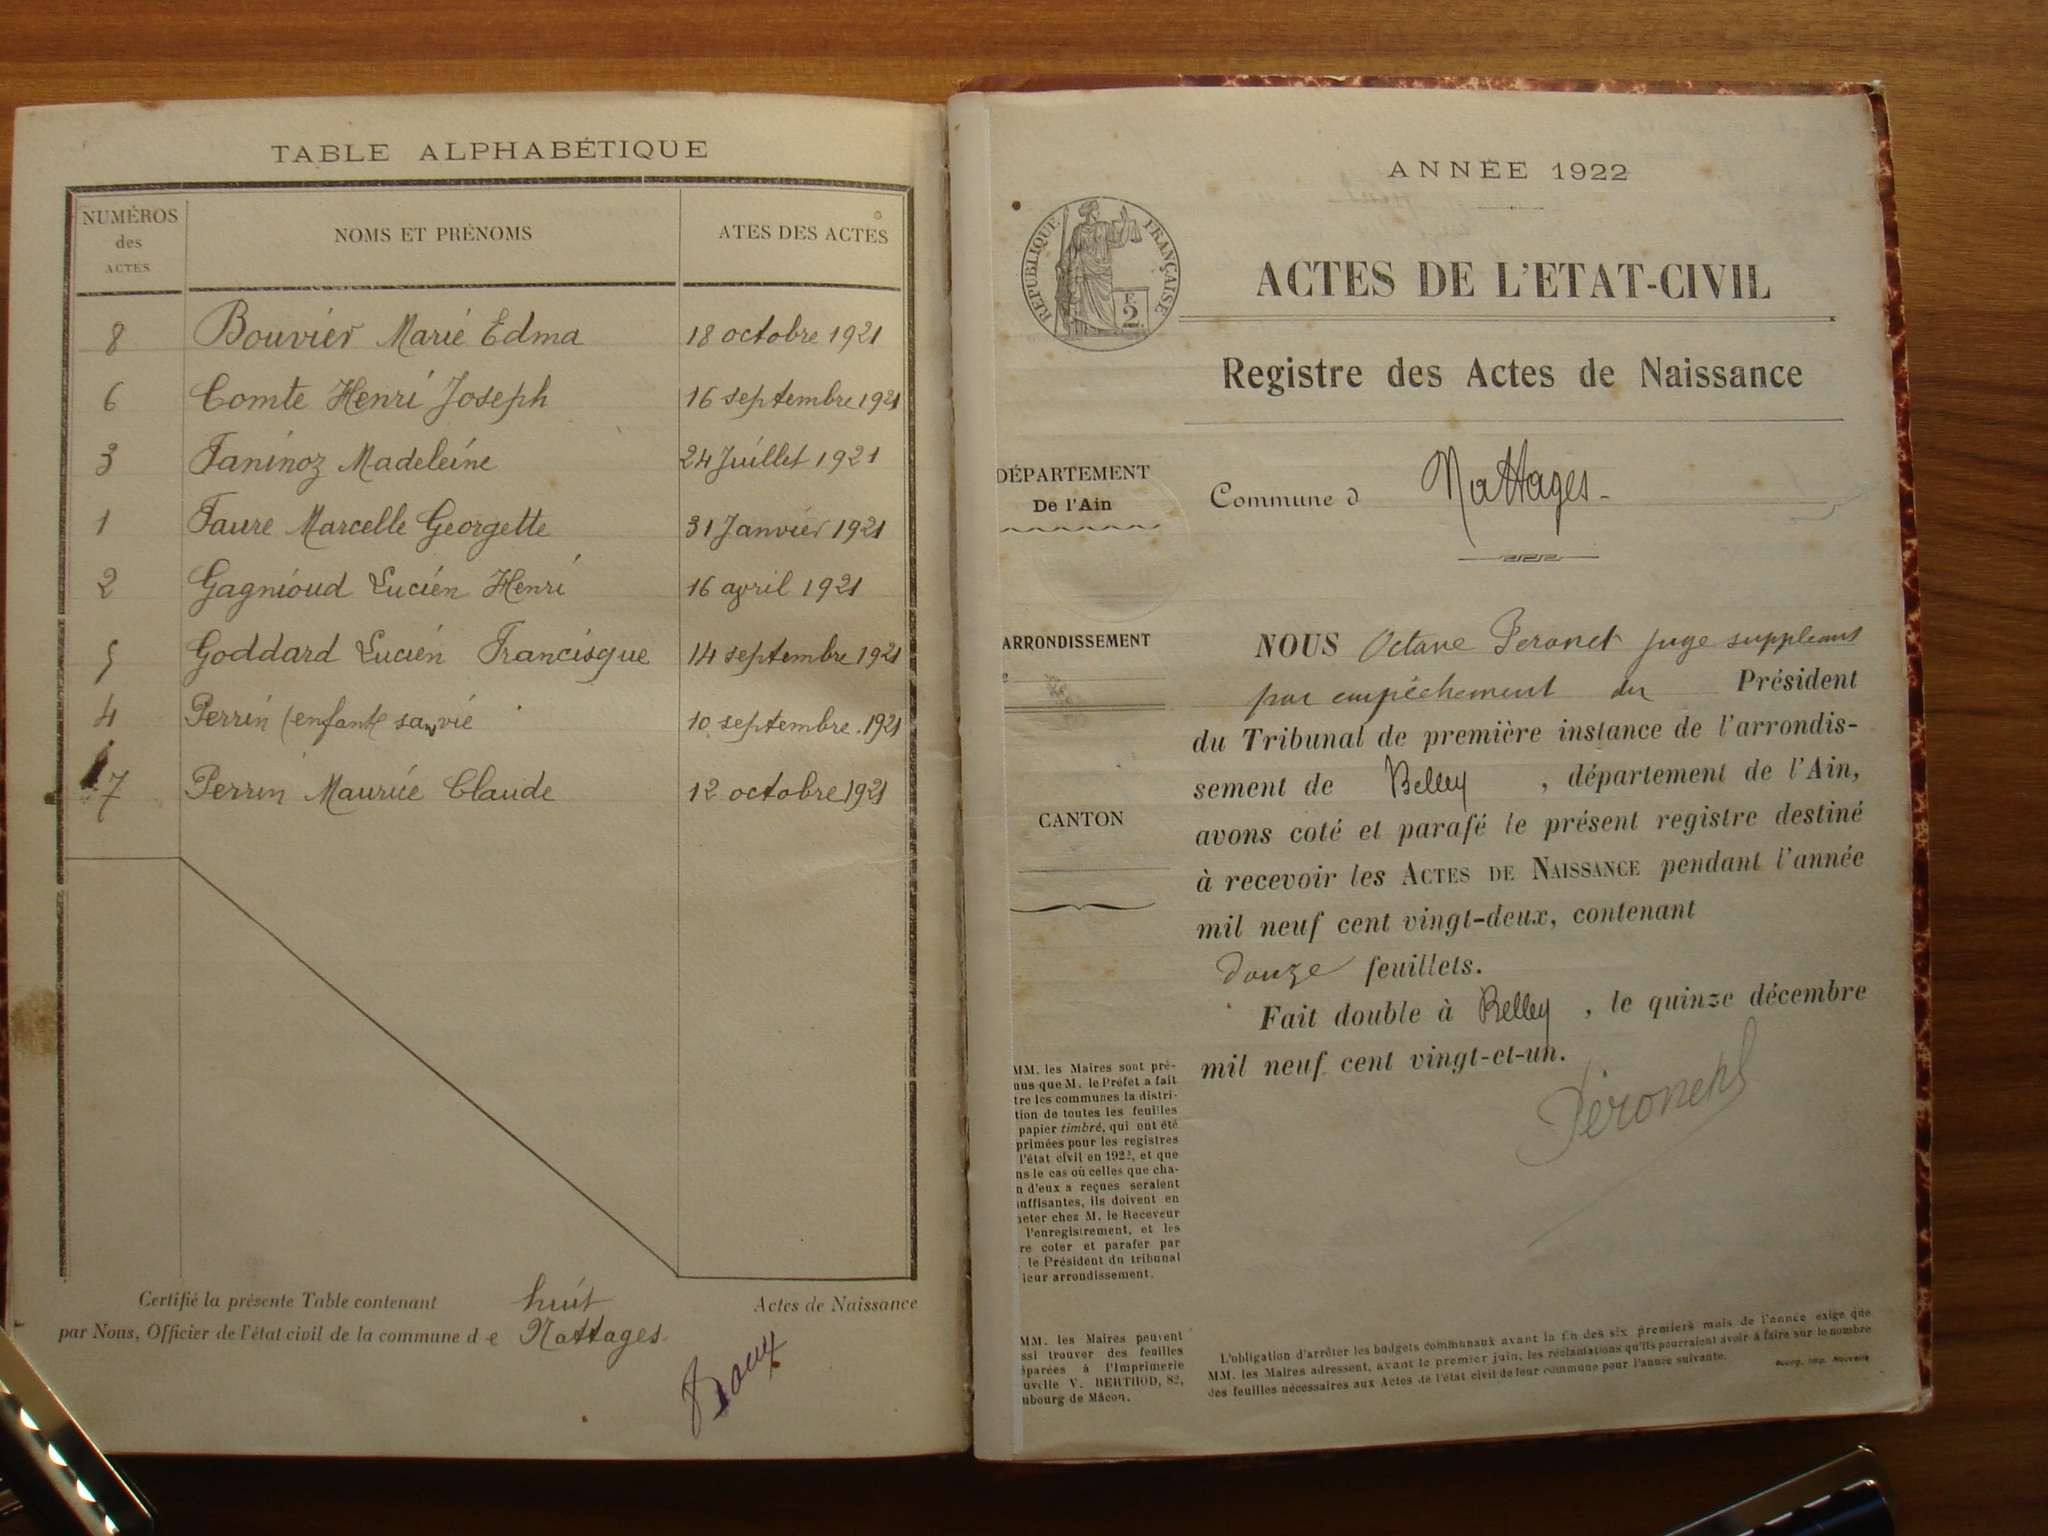 TABLE ALPHABÉTIQUE
NUMÉROS des ACTES
NOMS ET PRÉNOMS
ATES DES ACTES
8 Bouvier Marie Edma 18 octobre 1921
6 Comte Henri Joseph 16 septembre 1921
3 Faninoz Madeleine 24 Juillet 1921
1 Faure Marcelle Georgette 31 Janvier 1921
2 Gagnioud Lucien Henri 16 avril 1921
5 Goddard Lucien Francisque 14 septembre 1921
4 Perrin (enfant sans vie 10 septembre 1921
7 Perrin Maurice Claude 12 octobre 1921
Certifié la présente Table contenant huit Actes de Naissance
par Nous, Officier de l'état civil de la commune d e Nattages.
Roux
ANNÉE 1922
RÉPUBLIQUE FRANÇAISE
F. 2
ACTES DE L'ETAT-CIVIL
Registre des Actes de Naissance
DÉPARTEMENT
De l'Ain
Commune d Nattages
ARRONDISSEMENT
CANTON
NOUS Octave Peronet juge suppléant
par empêchement du Président
du Tribunal de première instance de l'arrondis-
sement de Belley, département de l'Ain,
avons coté et parafé le présent registre destiné
à recevoir les ACTES DE NAISSANCE pendant l'année
mil neuf cent vingt-deux, contenant
douze feuillets.
Fait double à Belley, le quinze décembre
mil neuf cent vingt-et-un.
MM. les Maires sont pré-
nus que M. le Préfet a fait
tre les communes la distri-
tion de toutes les feuilles
papier timbré, qui ont été
primées pour les registres
l'état civil en 1922, et que
ns le cas où celles que cha-
n d'eux a reçues seraient
suffisantes, ils doivent en
heter chez M. le Receveur
l'enregistrement, et les
re coter et parafer par
le Président du tribunal
leur arrondissement.
MM. les Maires peuvent
ssi trouver des feuilles
éparées à l'Imprimerie
uvelle V. BERTHOD, 82,
ubourg de Mâcon.
L'obligation d'arrêter les budgets communaux avant la fin des six premiers mois de l'année exige que
MM. les Maires adressent, avant le premier juin, les réclamations qu'ils pourraient avoir à faire sur le nombre
des feuilles nécessaires aux Actes de l'état civil de leur commune pour l'année suivante.
Bourg, Imp. Nouvelle